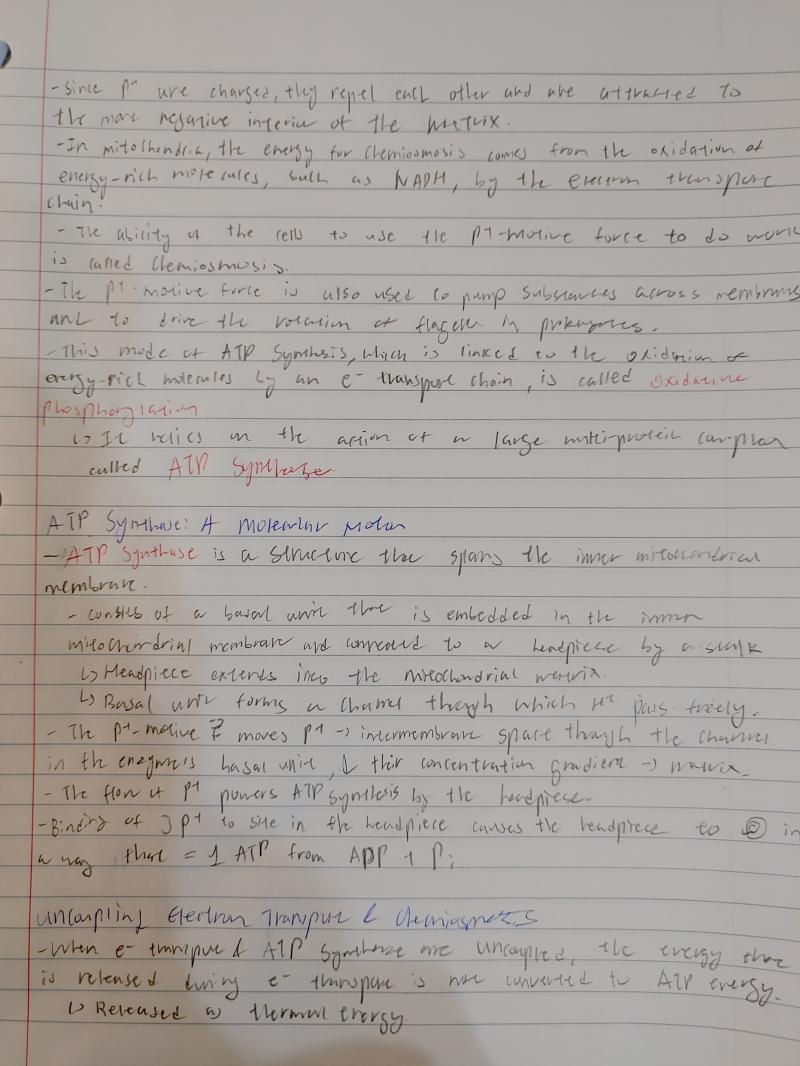 - Since P⁺ are charged, they repel each other and are attracted to
the more negative interior of the matrix.
- In mitochondria, the energy for chemiosmosis comes from the oxidation of
energy-rich molecules, such as NADH, by the electron transport
chain.
- The ability of the cells to use the P⁺-motive force to do work
is called Chemiosmosis.
- The P⁺-motive force is also used to pump substances across membranes
and to drive the rotation of flagella in prokaryotes.
- This mode of ATP Synthesis, which is linked to the oxidation of
energy-rich molecules by an e⁻ transport chain, is called oxidative
phosphorylation
↳ It relies on the action of a large multi-protein complex
called ATP Synthase.
ATP Synthase: A Molecular Motor
- ATP Synthase is a structure that spans the inner mitochondrial
membrane.
- consists of a basal unit that is embedded in the inner
mitochondrial membrane and connected to a headpiece by a stalk
↳ Headpiece extends into the mitochondrial matrix.
↳ Basal unit forms a channel through which H⁺ pass freely.
- The P⁺-motive F moves P⁺ → intermembrane space through the channel
in the enzyme's basal unit, ↓ their concentration gradient → matrix.
- The flow of P⁺ powers ATP synthesis by the headpiece.
- Binding of 3 P⁺ to site in the headpiece causes the headpiece to in
a way that = 1 ATP from ADP + Pi
Uncoupling Electron Transport & Chemiosmosis
- When e⁻ transport & ATP Synthase are uncoupled, the energy that
is released during e⁻ transport is not converted to ATP energy.
↳ Released as thermal energy